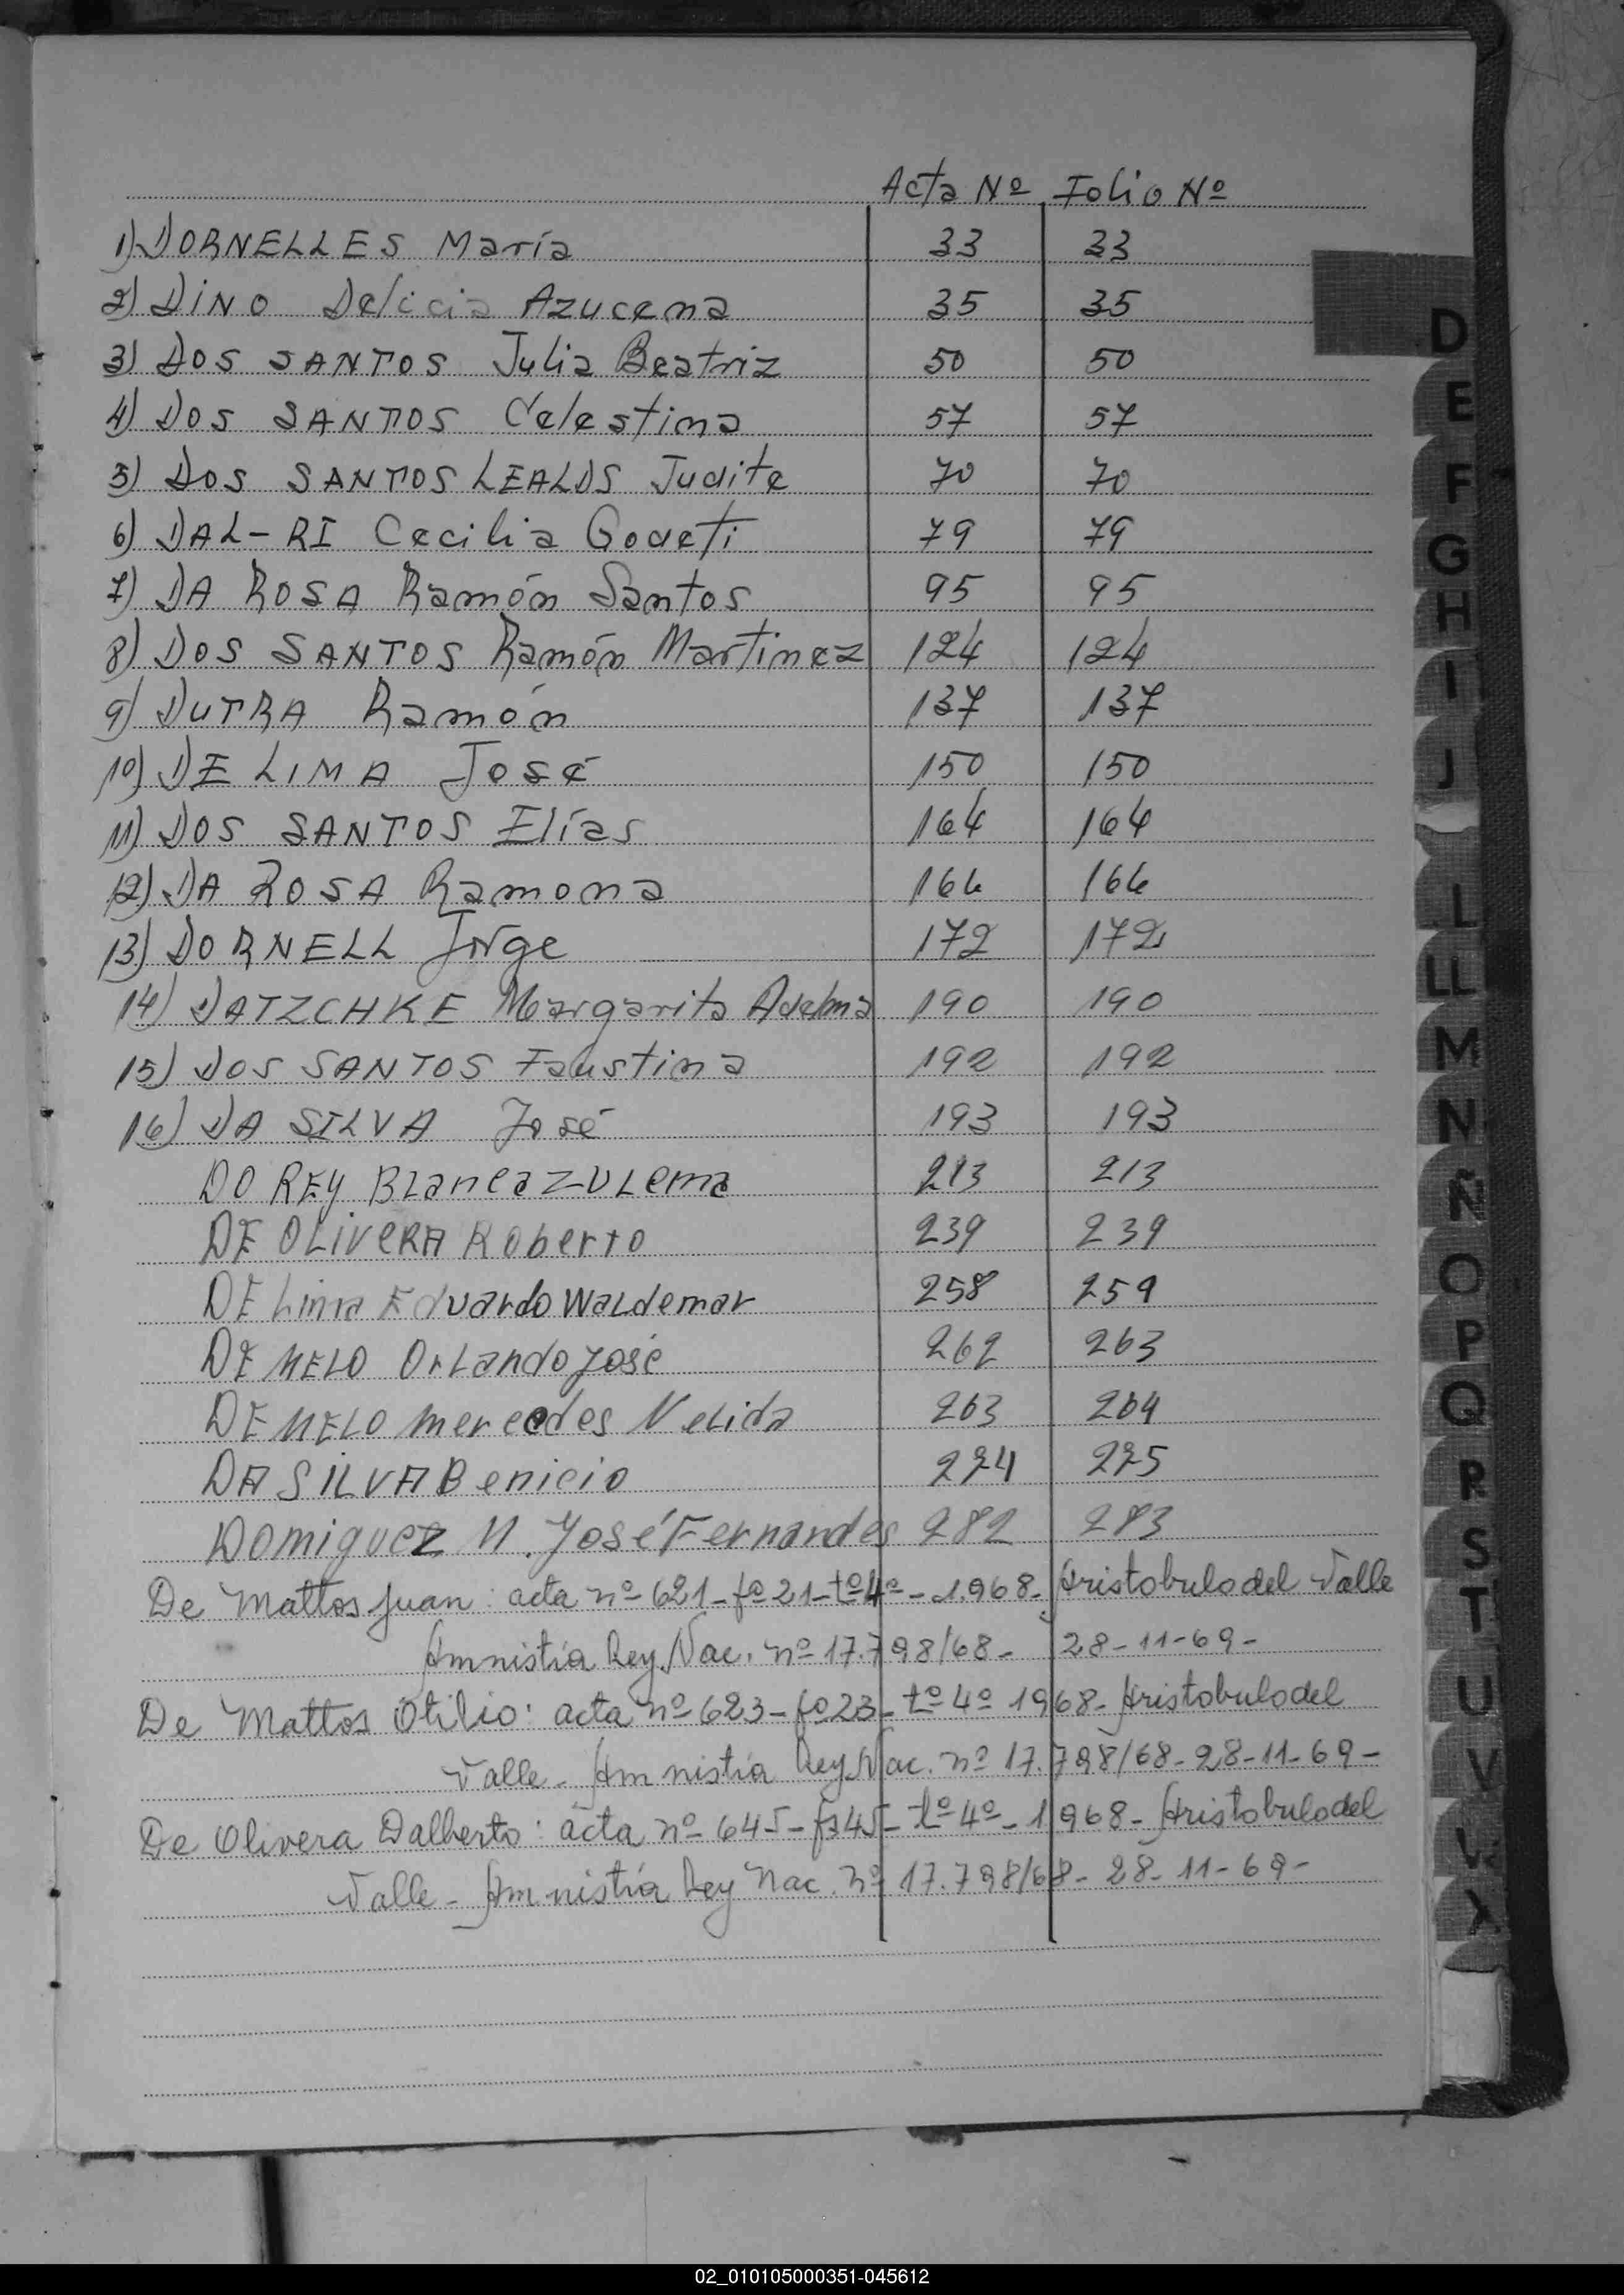 Acta Nº Folio Nº
1) DORNELLES María 33 33
2) DINO Delicia Azucena 35 35
3) DOS SANTOS Julia Beatriz 50 50
4) DOS SANTOS Celestina 57 57
5) DOS SANTOS LEALDS Judite 70 70
6) DAL-RI Cecilia Godeti 79 79
7) DA ROSA Ramón Santos 95 95
8) DOS SANTOS Ramón Martinez 124 124
9) DUTRA Ramón 137 137
10) DE LIMA José 150 150
11) DOS SANTOS Elías 164 164
12) DA ROSA Ramona 166 166
13) DORNELL Jorge 172 172
14) DATZCHKE Margarita Adelma 190 190
15) DOS SANTOS Faustina 192 192
16) DA SILVA José 193 193
DO REY BLanca ZULema 213 213
DE OLIVERA Roberto 239 239
DE Lima Eduardo WaLdemar 258 259
DE MELO OrLando José 262 263
DE MELO mercedes NeLida 263 264
DA SILVA Benicio 274 275
DOmiguez M. José Fernandes 282 283
De Mattos Juan: acta nº 621-fº 21-tº 4º-1.968-Aristobulo del Valle
Amnistía Ley Nac. nº 17.798/68- 28-11-69-
De Mattos Otilio: acta nº 623-fº 23-tº 4º 1968-Aristobulo del
Valle-Amnistía Ley Nac. nº 17.798/68-28-11-69-
De Olivera Dalberto: acta nº 645-fº 45-tº 4º-1968-Aristobulo del
Valle-Amnistía Ley Nac. nº 17.798/68-28-11-69-
D
E
F
G
H
I
J
L
LL
M
N
Ñ
O
P
Q
R
S
T
U
V
X
02_010105000351-045612